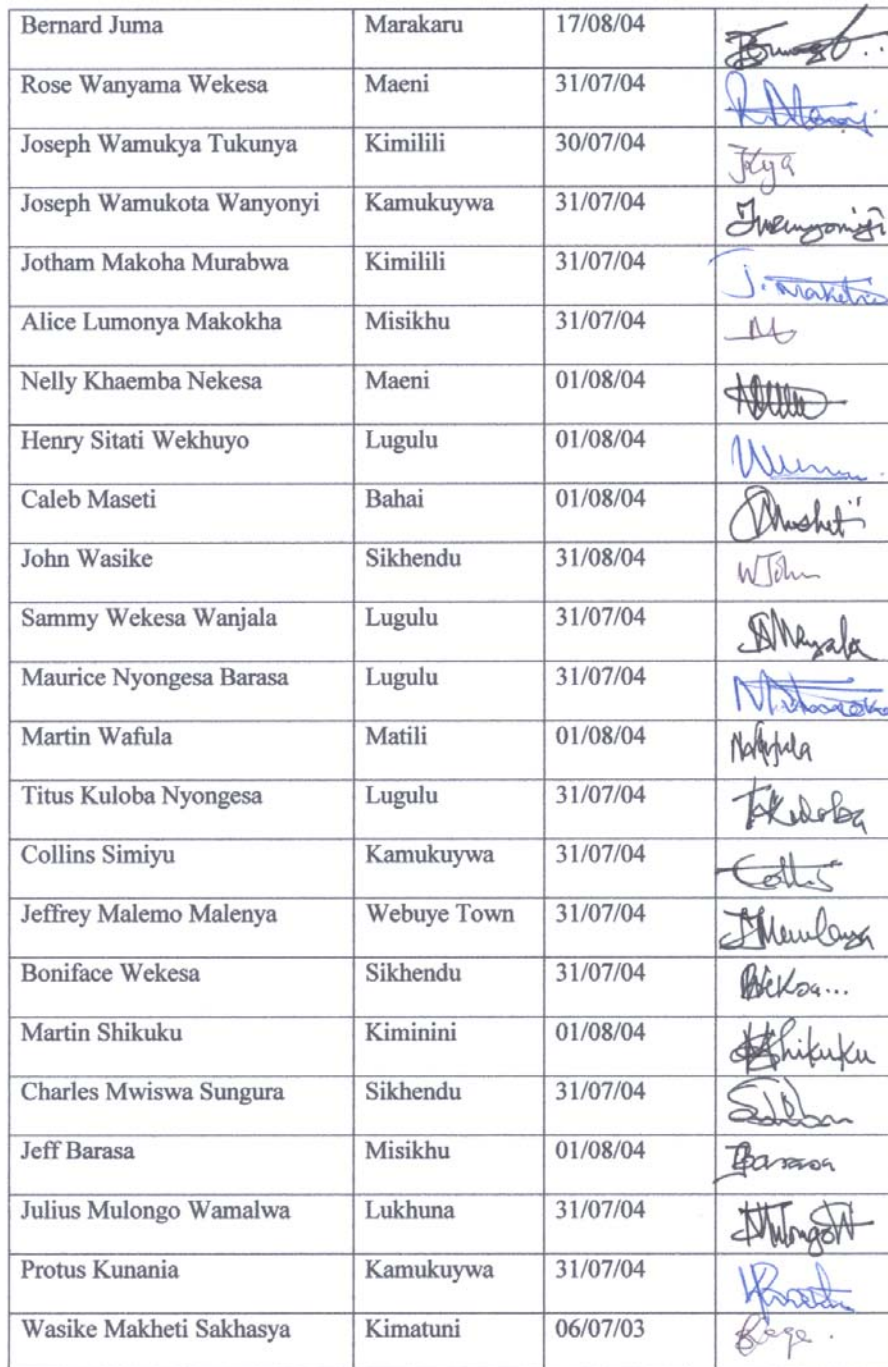 Bernard Juma Marakaru 17/08/04
Rose Wanyama Wekesa Maeni 31/07/04
Joseph Wamukya Tukunya Kimilili 30/07/04
Joseph Wamukota Wanyonyi Kamukuywa 31/07/04
Jotham Makoha Murabwa Kimilili 31/07/04
Alice Lumonya Makokha Misikhu 31/07/04
Nelly Khaemba Nekesa Maeni 01/08/04
Henry Sitati Wekhuyo Lugulu 01/08/04
Caleb Maseti Bahai 01/08/04
John Wasike Sikhendu 31/08/04 W John
Sammy Wekesa Wanjala Lugulu 31/07/04
Maurice Nyongesa Barasa Lugulu 31/07/04
Martin Wafula Matili 01/08/04
Titus Kuloba Nyongesa Lugulu 31/07/04 TKuloba
Collins Simiyu Kamukuywa 31/07/04
Jeffrey Malemo Malenya Webuye Town 31/07/04
Boniface Wekesa Sikhendu 31/07/04
Martin Shikuku Kiminini 01/08/04 Shikuku
Charles Mwiswa Sungura Sikhendu 31/07/04
Jeff Barasa Misikhu 01/08/04 Barasa
Julius Mulongo Wamalwa Lukhuna 31/07/04
Protus Kunania Kamukuywa 31/07/04
Wasike Makheti Sakhasya Kimatuni 06/07/03